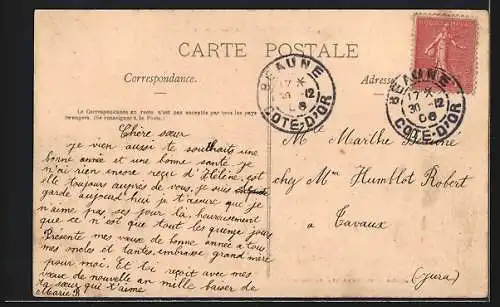 CARTE POSTALE
Correspondance.
Adresse
La Correspondance au recto n'est pas acceptée par tous les pays
étrangers. (Se renseigner à la Poste).
BEAUNE
17 *
30 -12
06
COTE-D'OR
BEAUNE
17 *
30 -12
06
COTE-D'OR
Chère sœur
je vien aussi te southaits une
bonne année et une bonne santé je
n'ai rien encore reçu d'Hélène, est
elle toujours auprès de vous, je suis
garde aujourd'hui je t'assure que je
n'aime pas ses jour là, heureusement
que ce n'est que tout les quinze jours
Présente mes vœux de bonne année à tous
mes oncles et tantes, embrasse grand mère
pour moi. Et toi reçoit avec mes
vœux de nouvelle an mille baiser de
ta sœur que t'aime
Marie
Melle Marthe
chez Mme Humblot Robert
à Tavaux
(Jura)